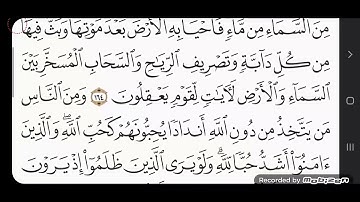 مِنَ ٱلسَّمَآءِ مِن مَّآءٍ فَأَحْيَا بِهِ ٱلْأَرْضَ بَعْدَ مَوْتِهَا وَبَثَّ فِيهَا
مِن كُلِّ دَآبَّةٍ وَتَصْرِيفِ ٱلرِّيَٰحِ وَٱلسَّحَابِ ٱلْمُسَخَّرِ بَيْنَ
ٱلسَّمَآءِ وَٱلْأَرْضِ لَأٓيَٰتٍ لِّقَوْمٍ يَعْقِلُونَ ١٦٤ وَمِنَ ٱلنَّاسِ
مَن يَتَّخِذُ مِن دُونِ ٱللَّهِ أَندَادًا يُحِبُّونَهُمْ كَحُبِّ ٱللَّهِ وَٱلَّذِينَ
ءَامَنُوٓا۟ أَشَدُّ حُبًّا لِّلَّهِ وَلَوْ يَرَى ٱلَّذِينَ ظَلَمُوٓا۟ إِذْ يَرَوْنَ
Recorded by
Mobizen